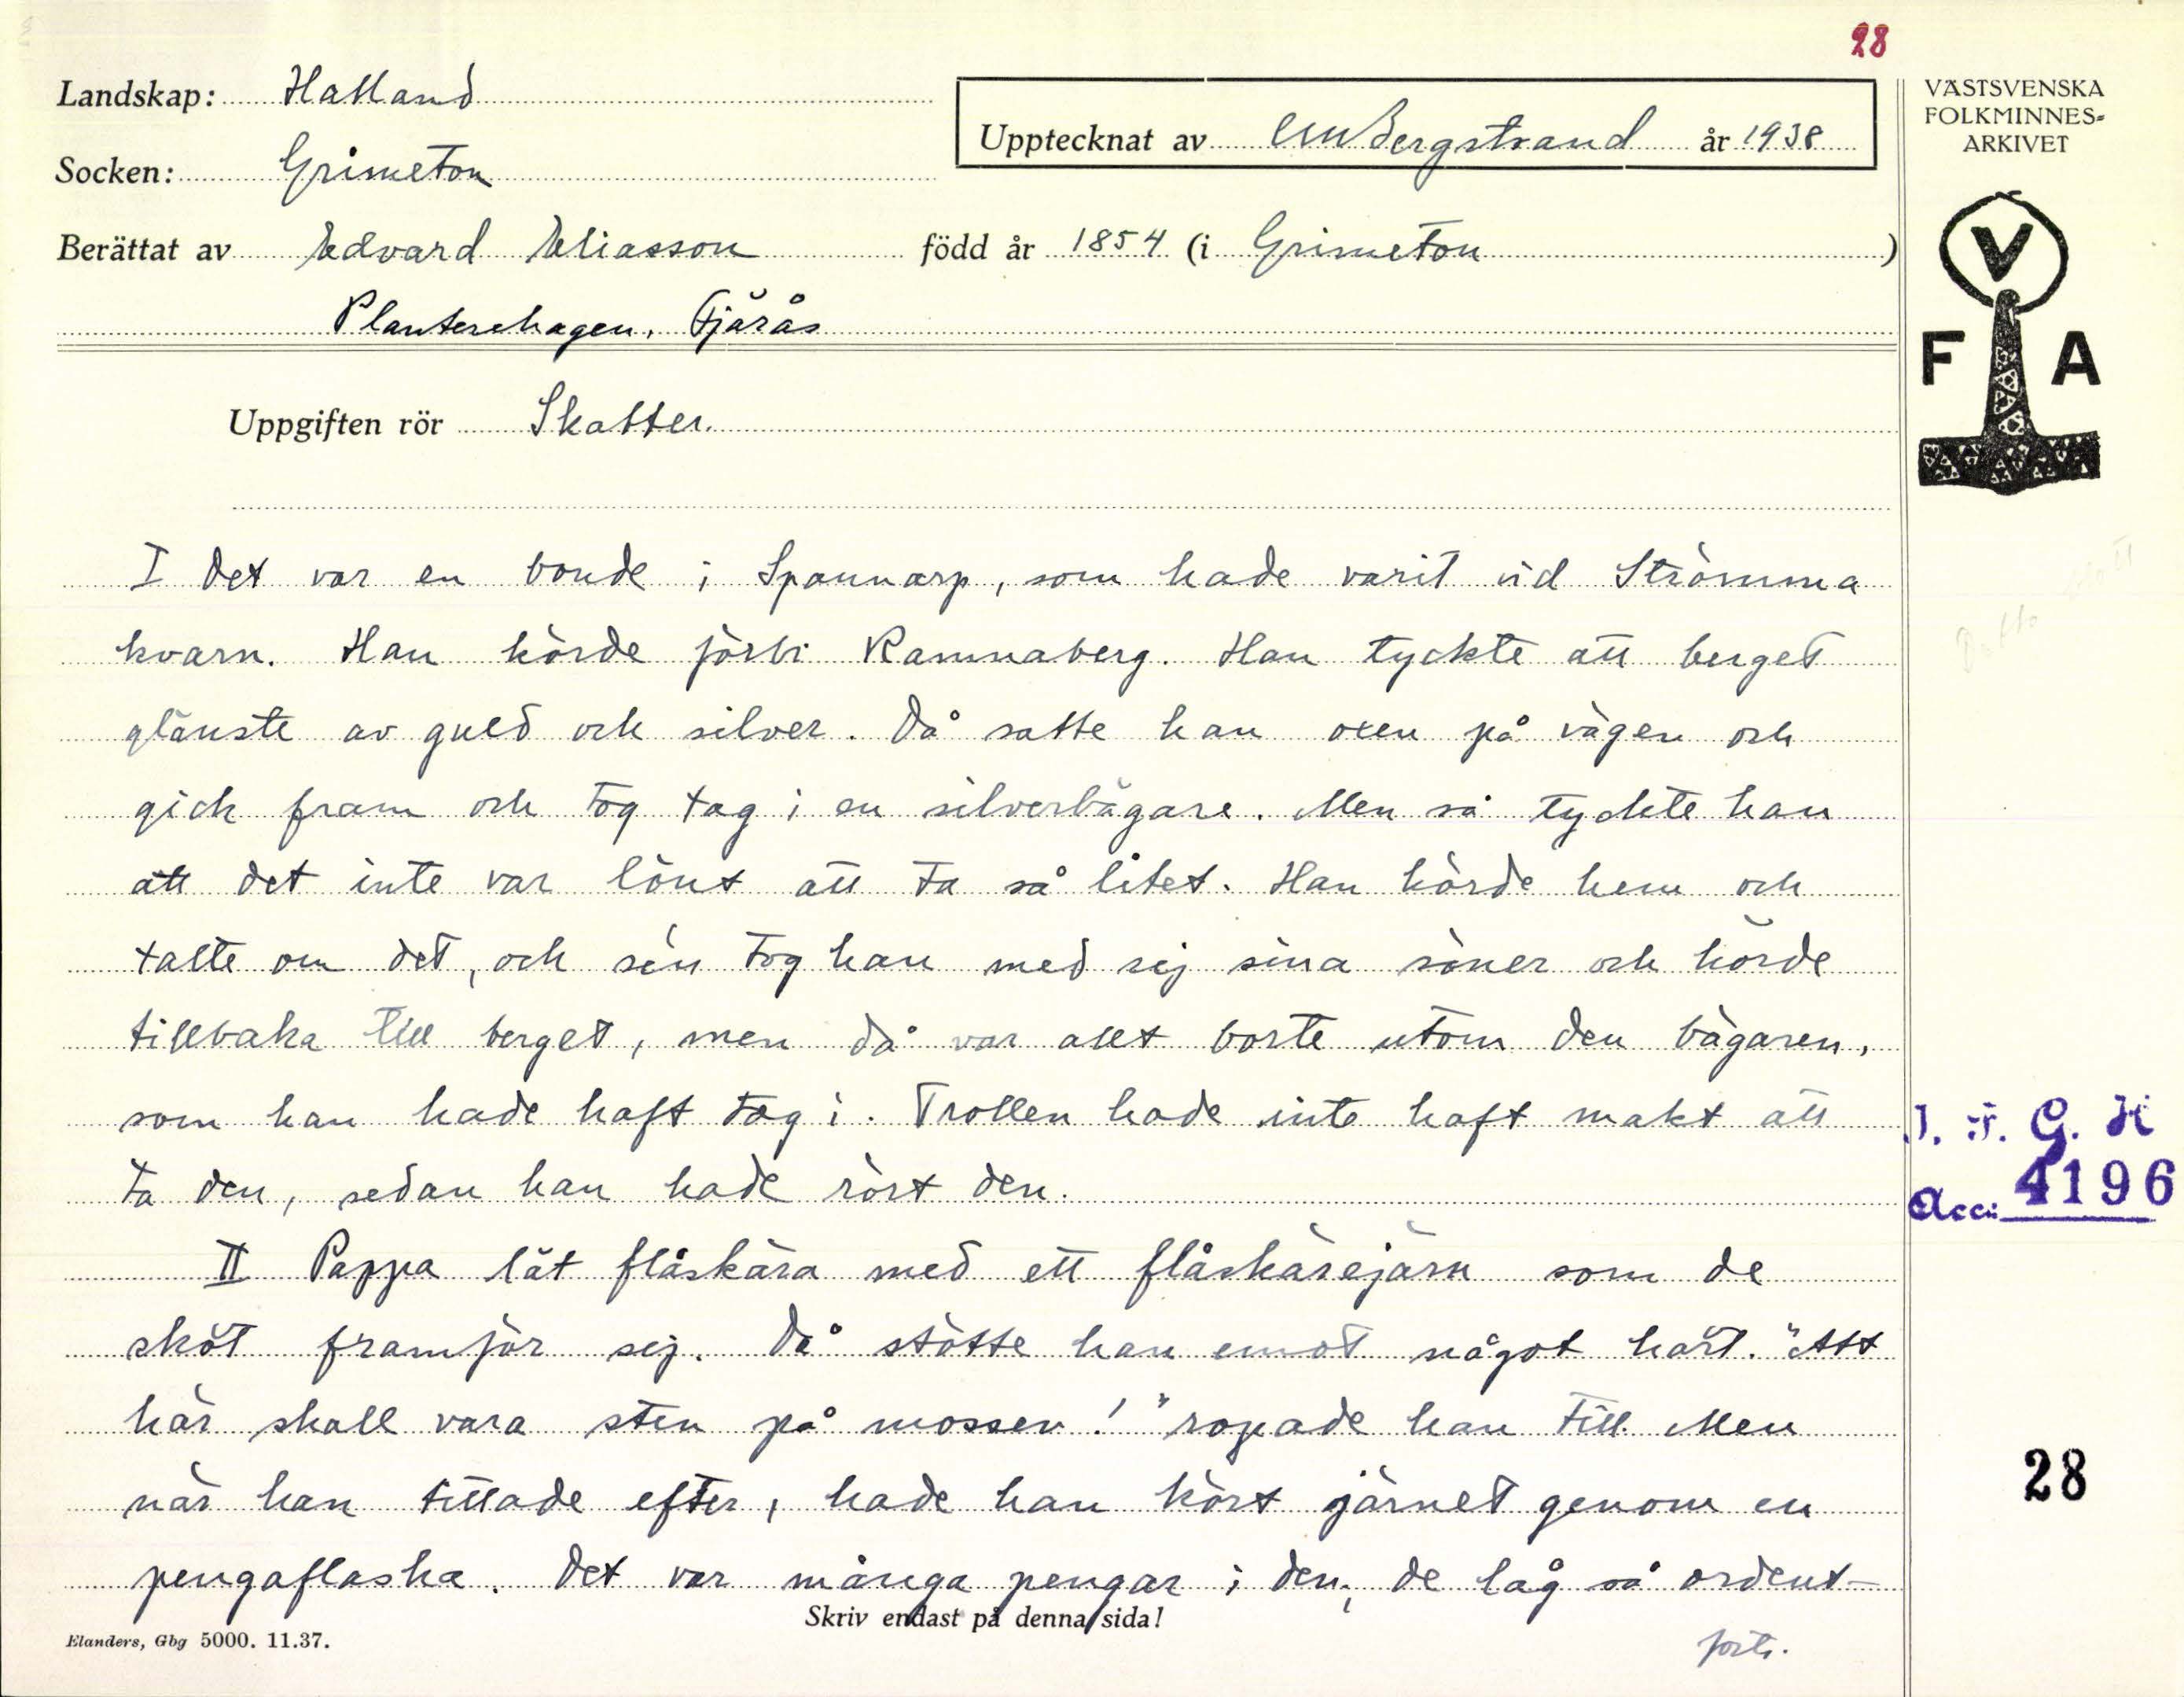 28
Landskap: Halland
VÄSTSVENSKA
FOLKMINNES-
ARKIVET
Upptecknat av CM Bergstrand år 1938
Socken: Grimeton
Berättat av Edvard Eliasson född år 1854 (i Grimeton)
V
Planterehagen, Fjärås
F A
Uppgiften rör Skatter.
I Det var en bonde i Spannarp, som hade varit vid Strömma
kvarn. Han körde förbi Ramnaberg. Han tyckte att berget
glänste av guld och silver. Då satte han oxen på vägen och
gick fram och tog tag i en silverbägare. Men så tyckte han
att det inte var lönt att ta så litet. Han körde hem och
talte om det, och sén tog han med sej sina söner och körde
tillbaka till berget, men då var allt borte utom den bägaren,
som han hade haft tag i. Trollen hade inte haft makt att
ta den, sedan han hade rört den.
J. F. G. H
Acc: 4196
II Pappa lät flåskära med ett flåskärejärn som de
sköt framför sej. Då stötte han emot något hårt. "Att
här skall vara sten på mossen!" ropade han till. Men
när han tittade efter, hade han kört järnet genom en
28
pengaflaska. Det var många pengar i den, de låg så ordent-
Skriv endast på denna sida!
Elanders, Gbg 5000. 11.37.
forts.